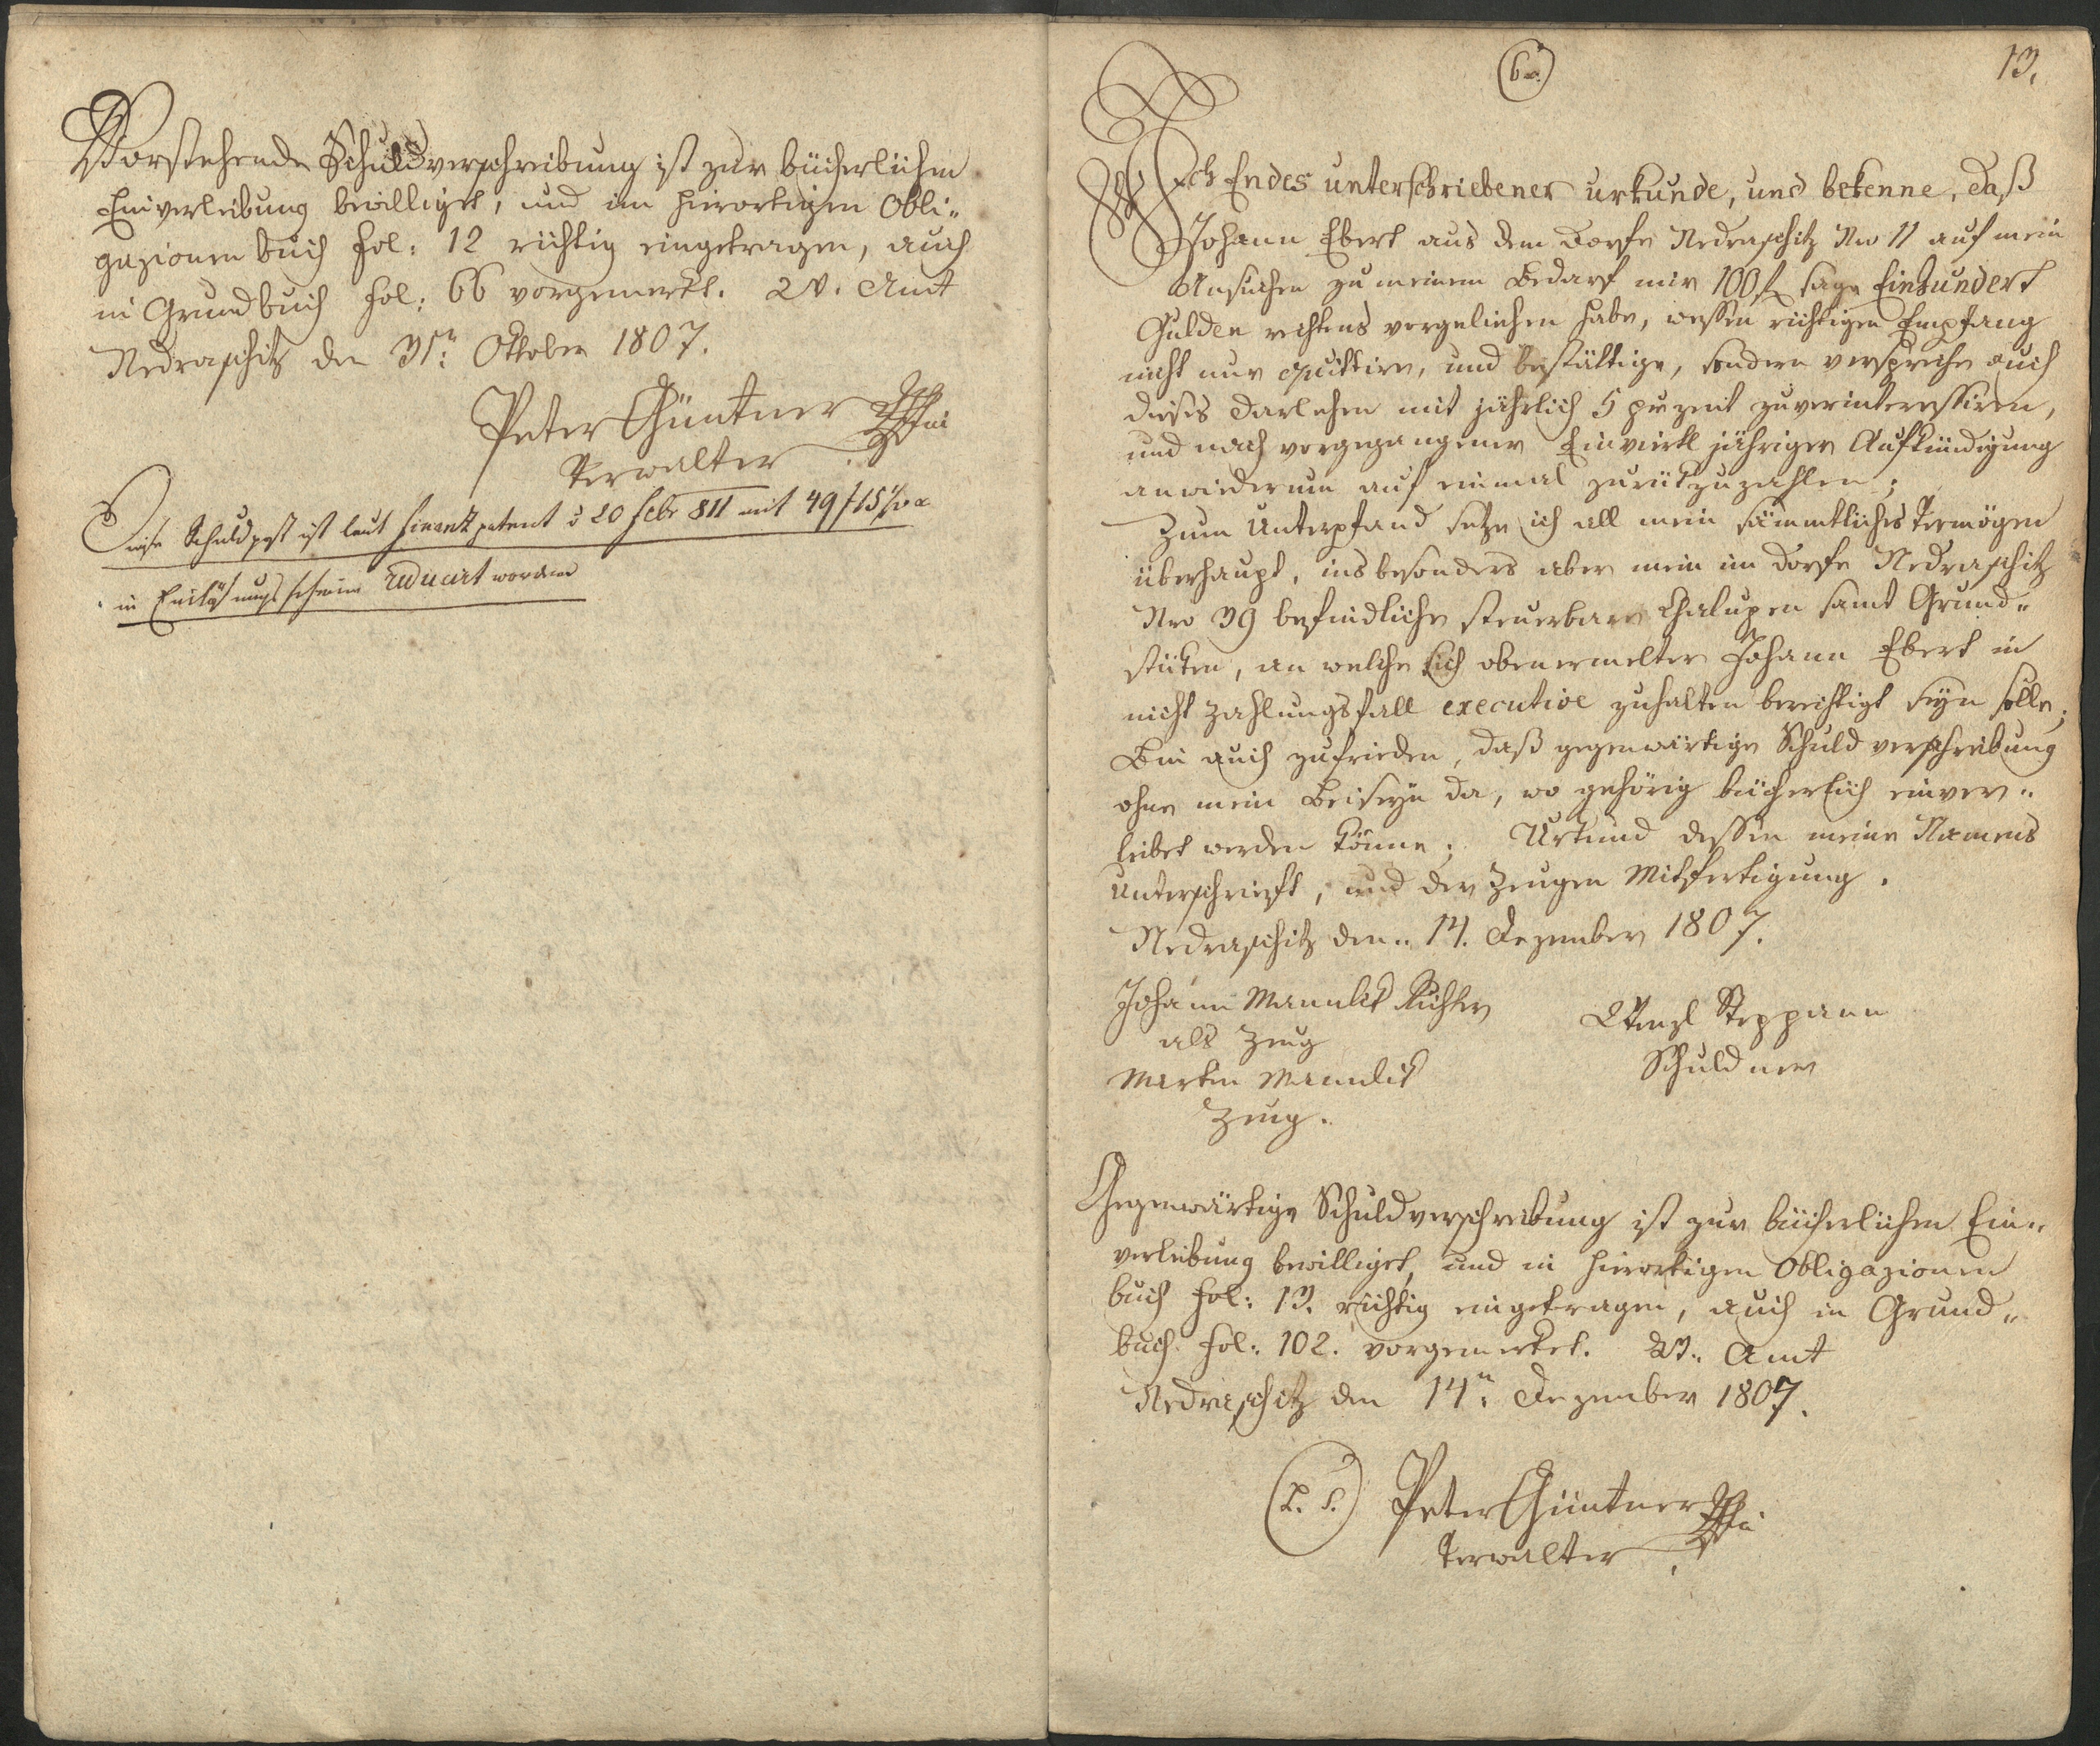 Vorstehende Schuldverschreibung ist zur bücherlichen
Einverleibung bewilliget, und im hierortigen Obli„
gazionenbuch fol: 12 richtig eingetragen, auch
in Grundbuch fol: 66 vorgemerkt. Amt
Nedraschitz den 31n: Oktober 1807.
Peter Güntner
Verwalter
Diese Schuldpost ist laut finanzpatent 20 febr 811 mit 49 f 15
in Einlösungsscheine reducirt worden
6.
13.
Ich Endes unterschriebener urkunde, und bekenne, daß
Johann Ebert aus dem Dorfe Nedraschitz Nro 11 auf mein
Ansuchen zu meinem Bedarf mir 100 f sage Einhundert
Gulden rechtens vorgeliehen habe, wessen richtigen Empfang
nicht nur quittire, und bestättige, sondern verspreche auch
dieses Darlehen mit jährlich 5 prozent zuverinteressiren,
und nach vorgegangener Einviertl jähriger Aufkündigung
anwiederum auf einmal zurükzuzahlen;
Zum Unterpfand setze ich all mein sämmtliches Vermögen
überhaupt, insbesonders aber mein im Dorfe Nedraschitz
Nro 39 befindliche steuerbare Chalupen samt Grund„
stüken, an welche sich obenermelter Johann Ebert in
nicht Zahlungsfall executive zuhalten berechtigt seyn solle;
Bin auch zufrieden, daß gegenwärtige Schuldverschreibung
ohne mein Beiseyn da, wo gehörig bücherlich einver„
leibet werden könne; Urkund dessen meine Namens
Unterschrieft, und der Zeugen Mitfertigung.
Nedraschitz den„ 14. Dezember 1807.
Johann Mannlik Richter
als Zeug
Martin Mannlik
Zeug.
Wenzl Steppann
Schuldner
Gegenwärtige Schuldverschreibung ist zur bücherlichen Ein„
verleibung bewilliget, und in hierortigen Obligazionen
buch fol: 13. richtig eingetragen, auch in Grund„
buch fol: 102. vorgemerket. Amt
Nedraschitz den 14n: Dezember 1807.
(L. S.) Peter Güntner
Verwalter